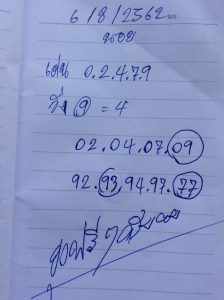 6/8/2562
นอย
เด่น 0.2.4.7.9
วิ่ง 9 = 4
02.04.07.09
92.93.94.97.77